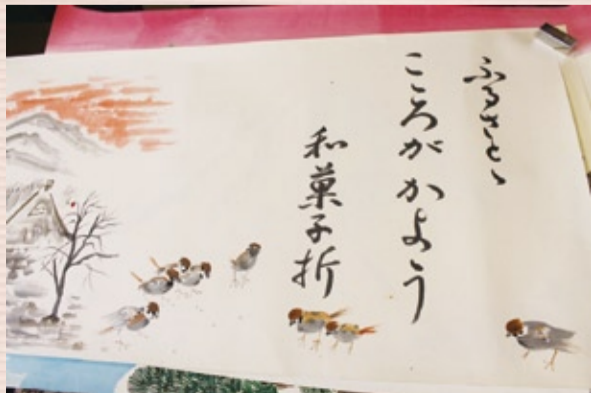 ふるさとゝ
こころがかよう
和菓子折